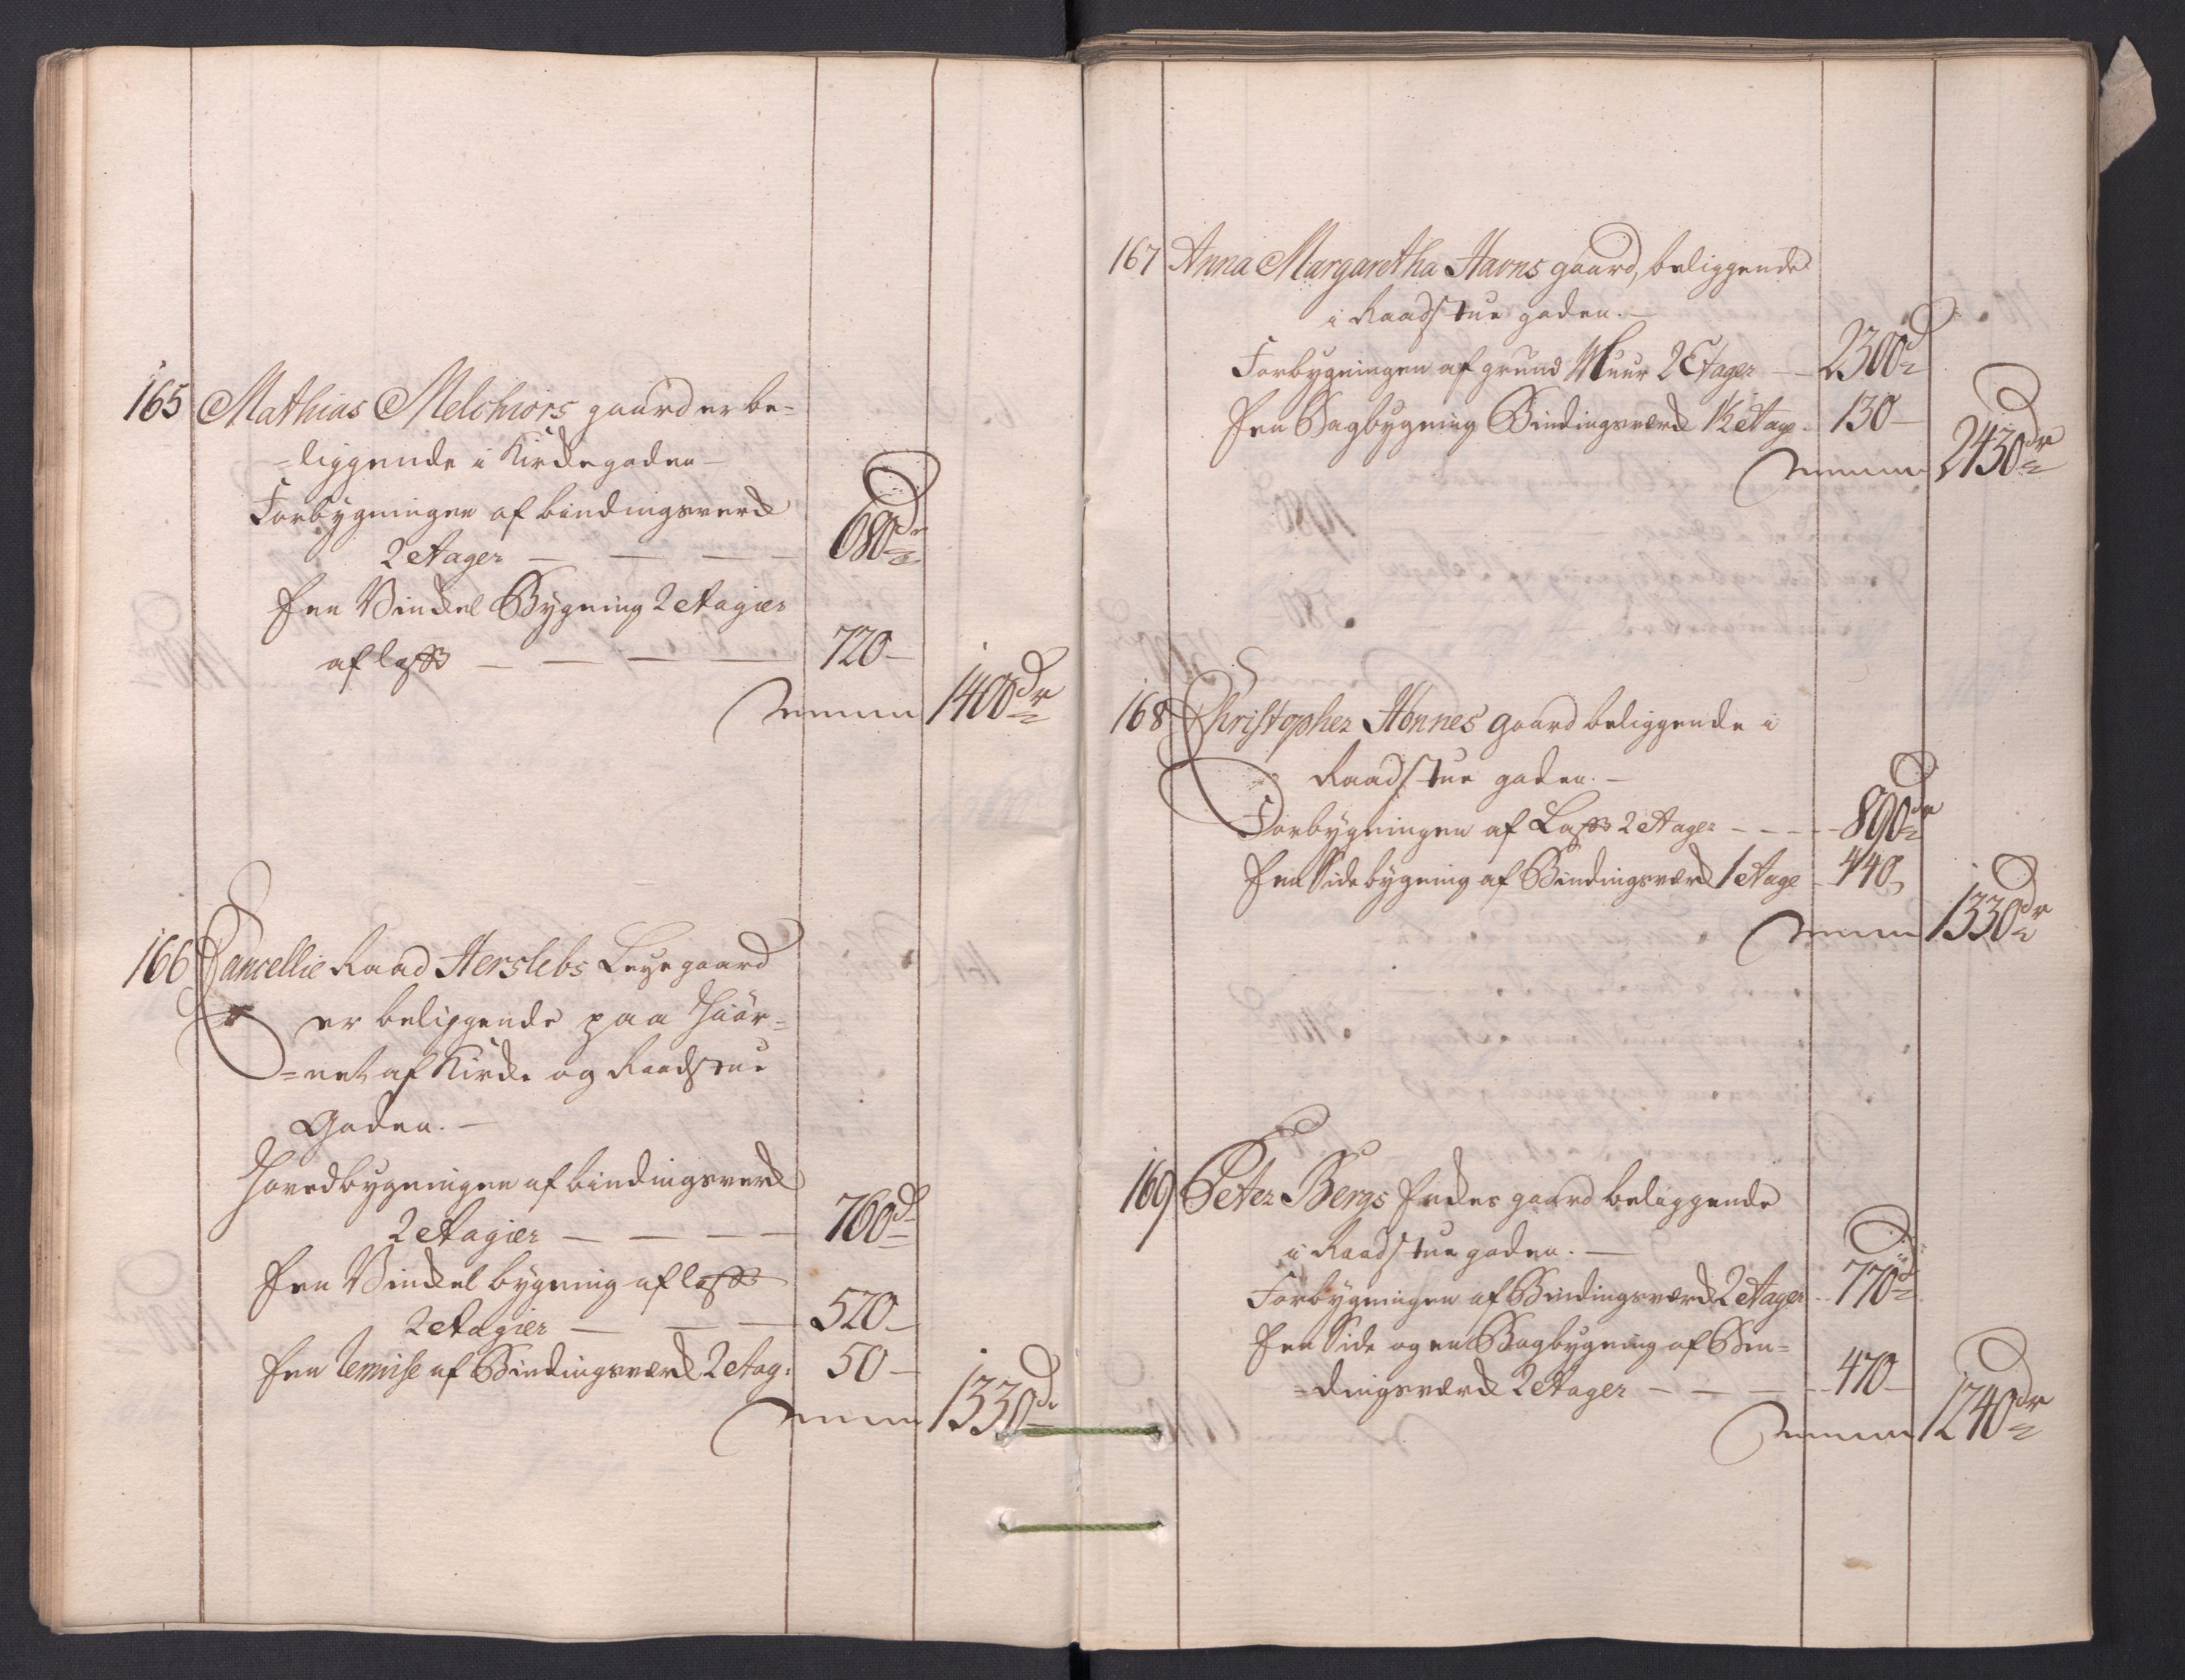 165 Mathias Melchiors gaard er be-
=liggende i Kirkegaden
Forbygningen af bindingsverk
2 Etager — — — — 680 dr
Een Vinkel Bygning 2 Etagier
af laft — — — — 720 —
Summa 1400 dr
166 Cancellie Raad Herslebs Leyegaard
er beliggende paa Hiör-
=net af Kirke og Raadstue
Gaden. —
Hovedbygningen af bindingsverk
2 Etagier — — — — 760 d
Een Vinkel bygning af laft
2 Etagier — — — 520 —
Een Remise af Bindingsværk 2 Etag: 50 —
Summa 1330 dr
167 Anna Margaretha Havns gaard, beliggende
i Raadstue gaden. —
Forbygningen af grund Muur 2 Etager — 2300 d
Een Bagbygning Bindingsværk 1½ Etage - 130 —
Summa 2430 dr
168 Christopher Hönnes gaard beliggende i
Raadstue gaden. —
Forbygningen af Laft 2 Etager - - - - 890 dr
Een Sidebygning af Bindingsværk 1 Etage - 440
Summa 1330 dr
169 Peter Bergs Enkes gaard beliggende
i Raadstue gaden. —
Forbygningen af Bindingsværk 2 Etager - 770 d
Een Side og en Bagbygning af Bin=
=dingsværk 2 Etager - — — 470 —
Summa 1240 dr